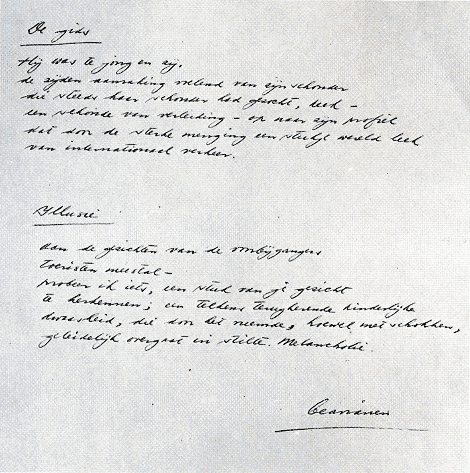 De gids
Hij was te jong en zij,
de zijden aanraking voelend van zijn schouder
die steeds haar schouder had gezocht, keek –
een schande van verleiding – op naar zijn profiel
dat door de sterke menging een stukje wereld leek
van internationaal verkeer.
Illusie
Aan de gezichten van de voorbijgangers
toeristen meestal –
probeer ik iets, een stuk van je gezicht
te herkennen; een telkens terugkerende kinderlijke
dwaasheid, die door het vreemde, hoewel met schokken,
geleidelijk overgaat in stilte. Melancholie.